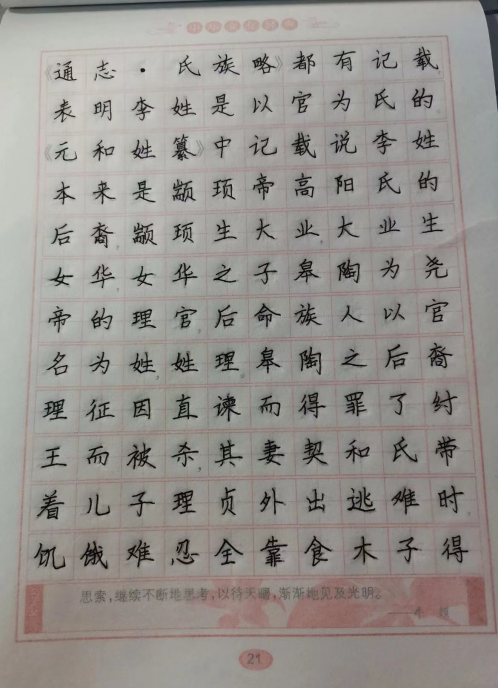 《通志·氏族略》都有记载
表明李姓是以官为氏的
《元和姓纂》中记载说李姓
本来是颛顼帝高阳氏的
后裔,颛顼生大业,大业生
女华,女华之子皋陶为尧
帝的理官,后命族人以官
名为姓,姓理。皋陶之后裔
理征因直谏而得罪了纣
王而被杀,其妻契和氏带
着儿子理贞外出逃难时
饥饿难忍,全靠食木子得
思索,继续不断地思考,以待天曙,渐渐地见及光明。
——牛顿
21